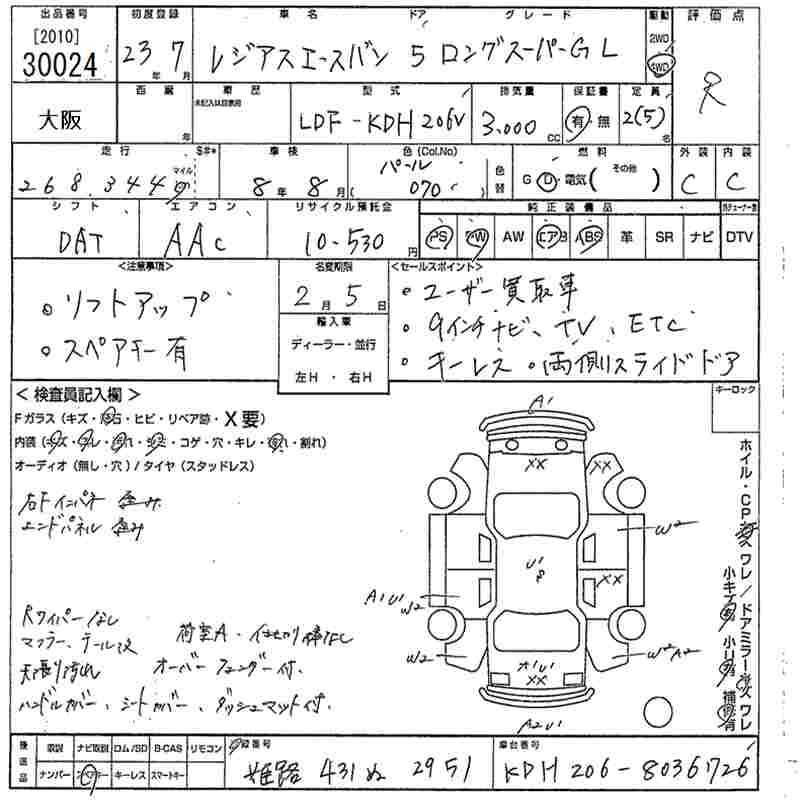 出品番号 初度登録 車名 ドア グレード 駆動 評価点
[2010] 30024 23年 7月 レジアスエースバン 5 ロングスーパーGL 2WD 4WD R
西暦 車歴 型式 排気量 保証書 定員
大阪 年 未記入は自家用 LDF-KDH206V 3,000cc 有・無 2(5)名
走行 S#* 車検 色(Col.No) 燃料 外装 内装
268,344 マイル 8年 8月 パール (070) 色替 G D・電気( その他 ) C C
シフト エアコン リサイクル預託金 純正装備品
DAT AAC 10-530円 PS PW AW エアB ABS 革 SR ナビ DTV
<注意事項> 名変期限 <セールスポイント>
・リフトアップ 2月 5日 ・ユーザー買取車
・スペアキー有 輸入車 ・9インチナビ、TV、ETC
ディーラー・並行 ・キーレス ・両側スライドドア
左H ・ 右H
<検査員記入欄> キーロック
Fガラス(キズ・飛石・ヒビ・リペア跡・X要)
内装(キズ・スレ・汚れ・シミ・コゲ・穴・キレ・割れ)
オーディオ(無し・穴)/タイヤ(スタッドレス)
右Fインパネ 歪み
エンドパネル 歪み
A1
XX XX
W2
U1
XX
A1U1 W2
W2 W2A2
XX
A2U1
ホイル・CPキズ ワレ/ドアミラーキズ ワレ
小キズ有 小凹有 補修有
Rワイパーなし
マフラー、テール改 荷室A・
天張り汚れ オーバーフェンダー付、
ハンドルカバー、シートカバー、ダッシュマット付、
後送品 取説 ナビ取説 ロム/SD B-CAS リモコン 登録番号 車台番号
ナンバー スペアキー キーレス スマートキー 姫路 431 ぬ 2951 KDH206-8036726